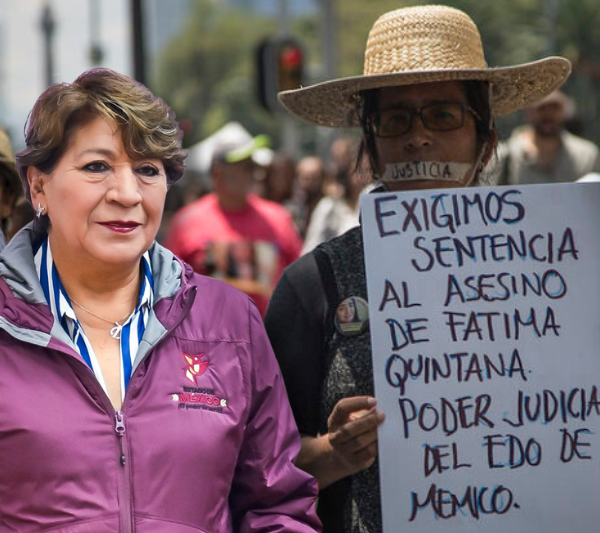 JUSTICIA
EXIGIMOS
SENTENCIA
AL ASESINO
DE FATIMA
QUINTANA.
PODER JUDICIA
DEL EDO DE
MEMICO.
ESTADO DE
MÉXICO